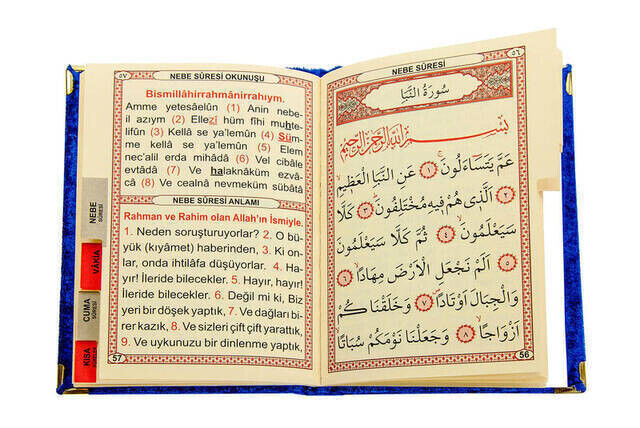 ٥٧
NEBE SÛRESİ OKUNUŞU
Bismillâhirrahmânirrahıym.
Amme yetesâelûn (1) Anin nebe-
il azıym (2) Ellezî hüm fîhi muhte-
lifûn (3) Kellâ se ya'lemûn (4) Süm-
me kellâ se ya'lemûn (5) Elem
nec'alil erda mihâdâ (6) Vel cibâle
evtâdâ (7) Ve halaknâküm ezvâ-
câ (8) Ve cealnâ nevmeküm sübâtâ
NEBE SÛRESİ ANLAMI
Rahman ve Rahim olan Allah'ın İsmiyle.
1. Neden soruşturuyorlar? 2. O bü-
yük (kıyâmet) haberinden, 3. Ki on-
lar, onda ihtilâfa düşüyorlar. 4. Ha-
yır! İleride bilecekler. 5. Hayır, hayır!
İleride bilecekler. 6. Değil mi ki, Biz
yeri bir döşek yaptık, 7. Ve dağları bi-
rer kazık, 8. Ve sizleri çift çift yarattık,
9. Ve uykunuzu bir dinlenme yaptık,
57
NEBE
SÛRESİ
VÂKIA
CUMA
SÛRESİ
KISA
٥٦
NEBE SÛRESİ
سُورَةُ النَّبَأِ
بِسْمِ اللهِ الرَّحْمٰنِ الرَّحِيمِ
عَمَّ يَتَسَاءَلُونَ ﴿١﴾ عَنِ النَّبَأِ الْعَظِيمِ
﴿٢﴾ اَلَّذِى هُمْ فِيهِ مُخْتَلِفُونَ ﴿٣﴾ كَلَّا
سَيَعْلَمُونَ ﴿٤﴾ ثُمَّ كَلَّا سَيَعْلَمُونَ
﴿٥﴾ اَلَمْ نَجْعَلِ الْاَرْضَ مِهَادًا ﴿٦﴾
وَالْجِبَالَ اَوْتَادًا ﴿٧﴾ وَخَلَقْنَاكُمْ
اَزْوَاجًا ﴿٨﴾ وَجَعَلْنَا نَوْمَكُمْ سُبَاتًا
56